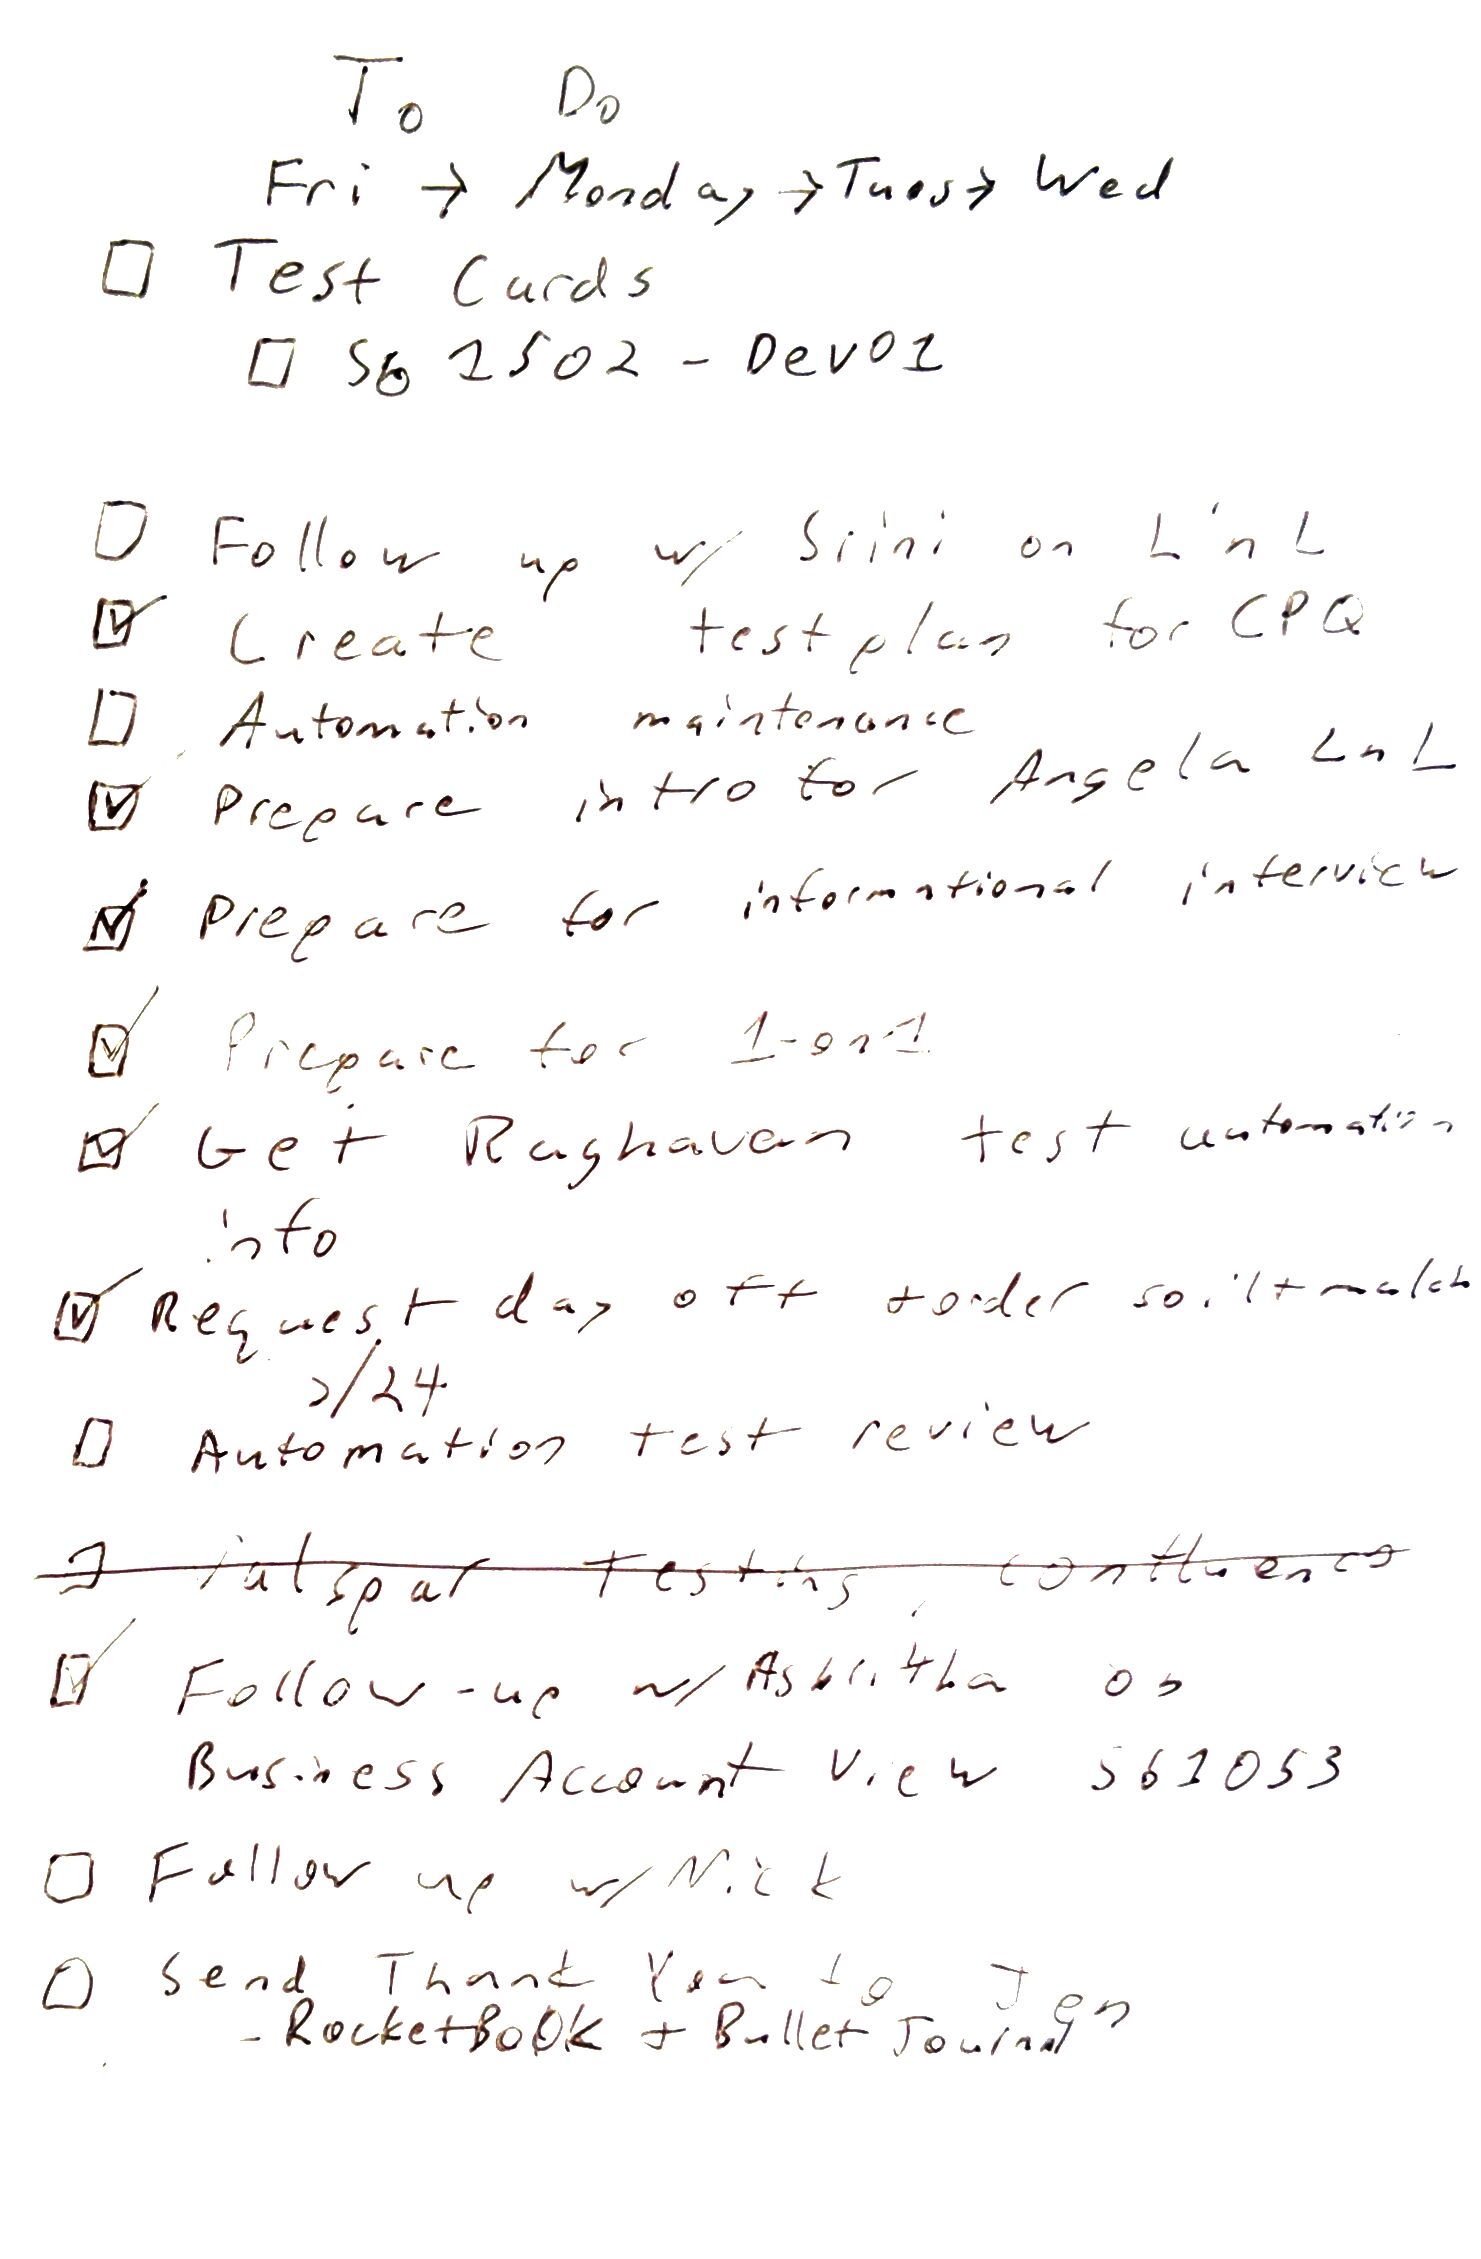 To Do
Fri → Monday → Tues → Wed
Test Cards
1502 - Dev01
Follow up w/ on L'nL
Create test plan for CPQ
Automation maintenance
Prepare intro for Angela LnL
Prepare for informational interview
Prepare for 1-on-1
Get Raghavan test automation
info
Request day off
/24
Automation test review
Testing Confluence
Follow-up w/ on
Business Account View 561053
Follow up w/ Nick
Send Thank You to Jen
- RocketBook + Bullet Journal